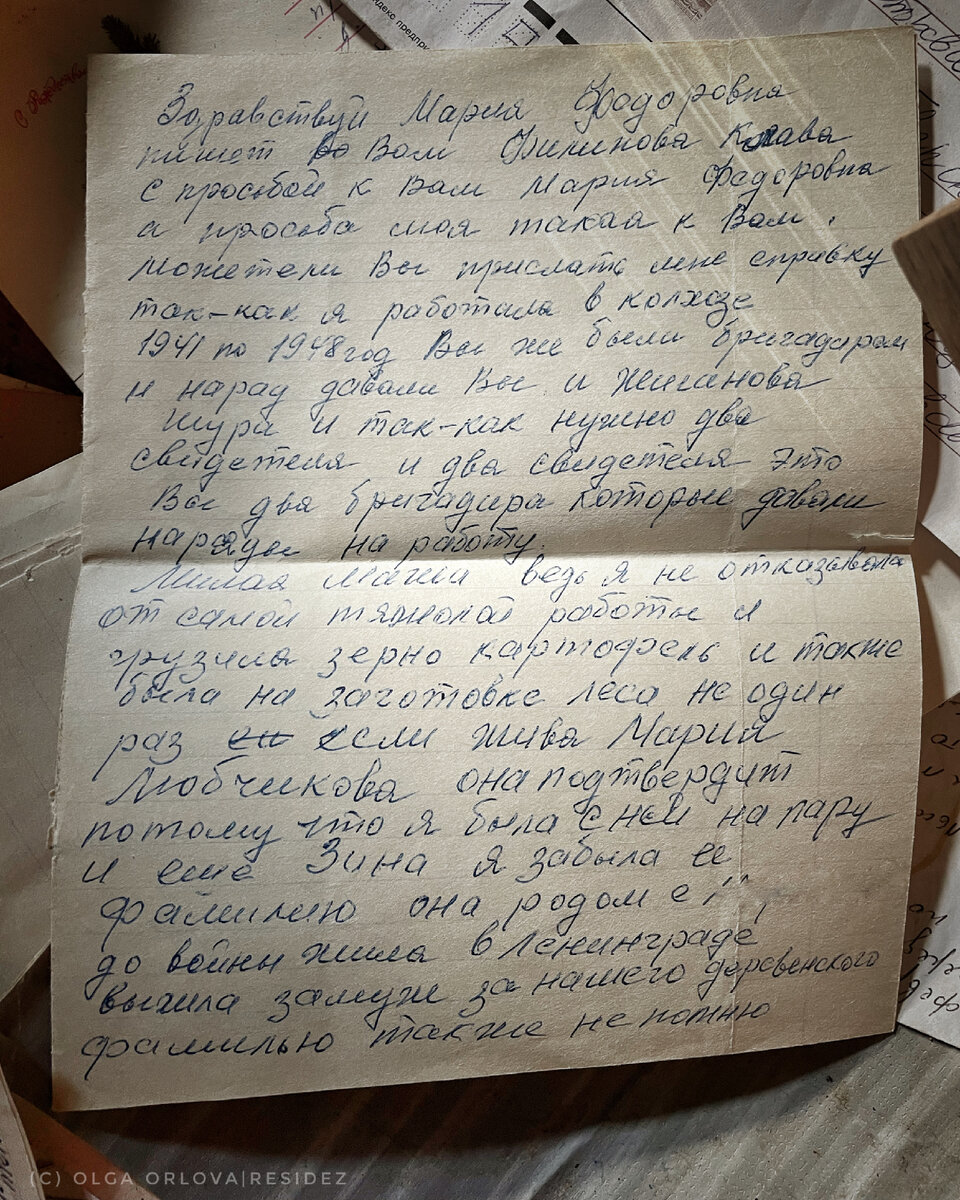 Здравствуй Мария Фодоровна
пишет Вам Филинова Клава
с просьбой к Вам Мария Федоровна
а просьба моя такая к Вам.
можетели Вы прислать мне справку
так-как я работала в колхозе
1941 по 1948 год Вы же были бригадиром
и нарад давали Вы и Жиганова
Шура и так-как нужно два
свидетеля и два свидетеля это
Вы два бригадира которые давали
нарады на работу.
Милая Маша ведь я не отказывала
от самой тяжолой работы я
грузила зерно картофель и также
была на заготовке леса не один
раз если жива Мария
Любчикова она подтвердит
потому что я была с ней на пару
и еще Зина я забыла ее
фамилию она родом с
до войны жила в Ленинграде
вышла замуж за нашего деревенского
фамилью также не помню
(C) OLGA ORLOVA|RESIDEZ